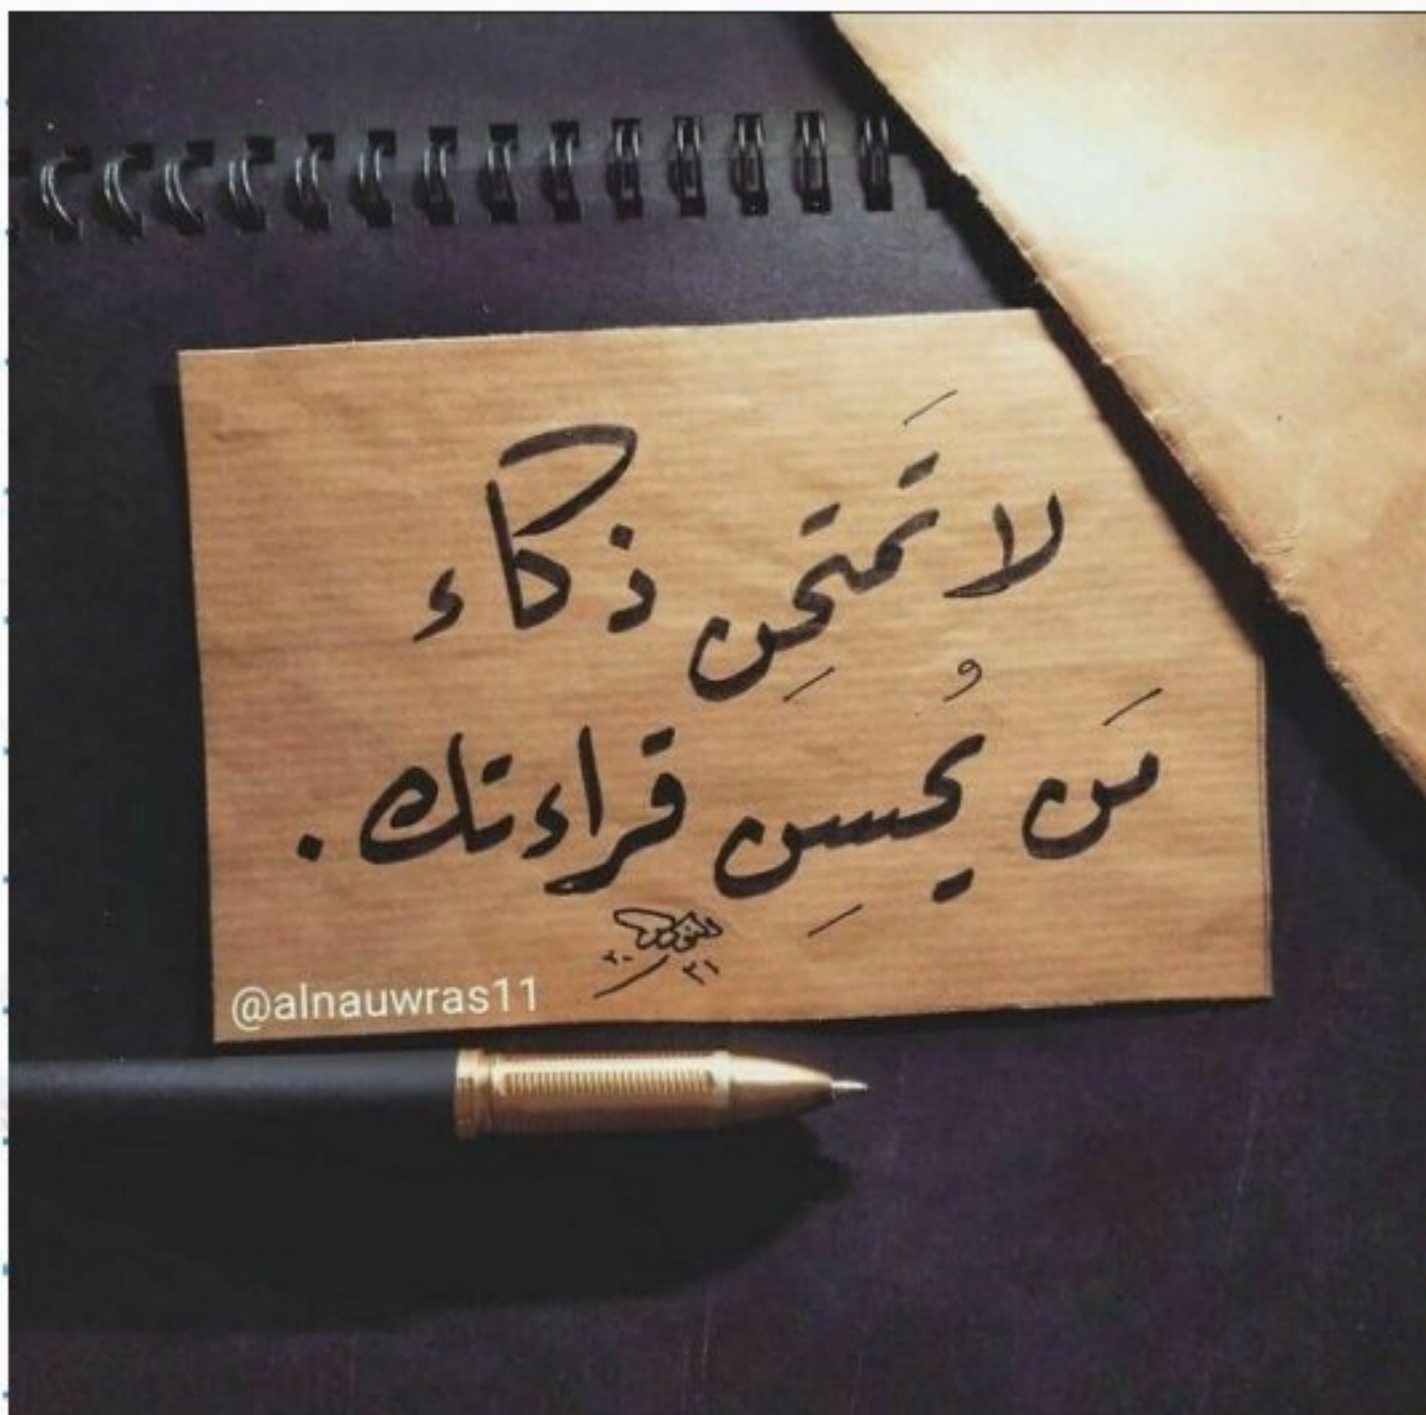 لا تَمتحِن ذكاء
مَن يُحسِن قراءتك.
@alnauwras11